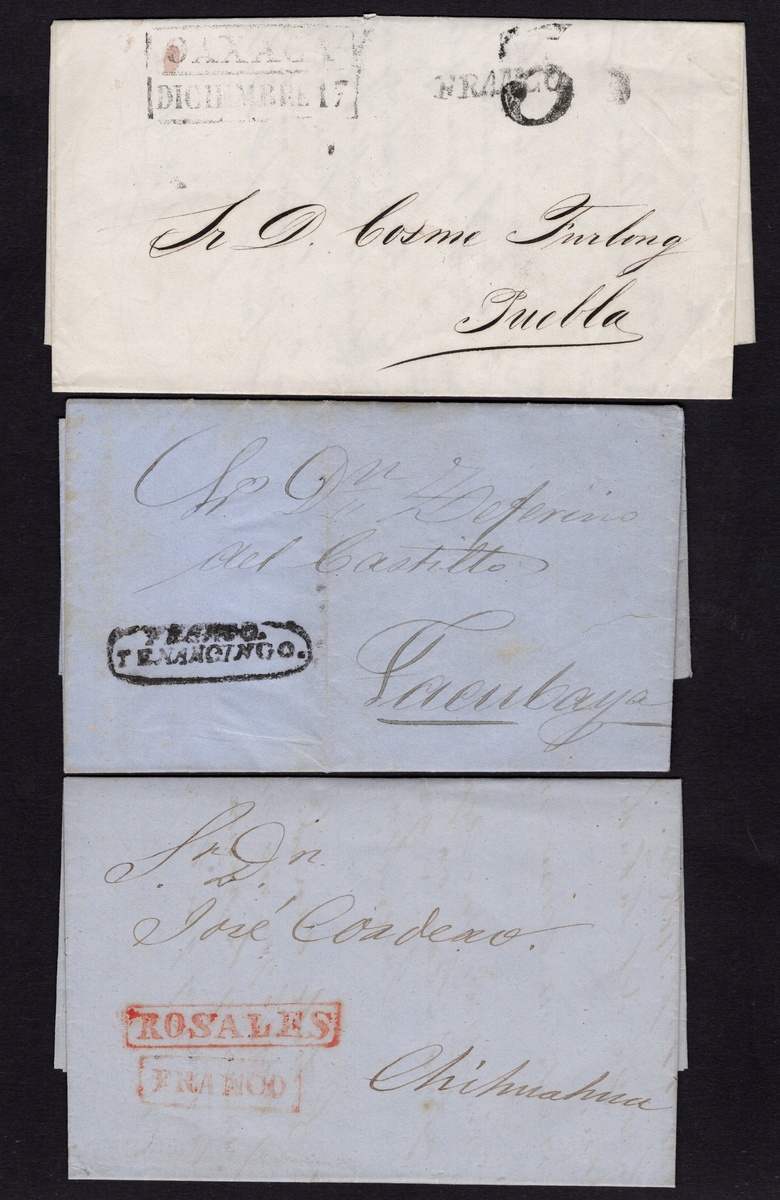 OAXACA
DICIEMBRE 17
FRANCO
Sr D. Cosme Furlong
Puebla
Sr. Dn Zeferino
del Castillo
FRANCO.
TENANCINGO.
Tacubaya
Sr. Dn.
D.
José Cordero.
ROSALES
FRANCO
Chihuahua